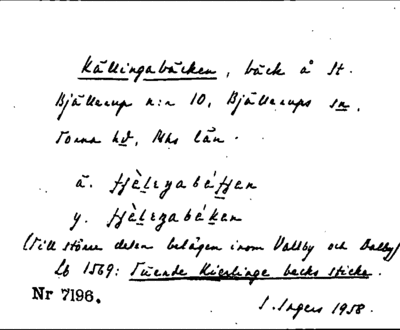 Källingabäcken, bäck å St.
Bjällerup n:r 10, Bjällerups sn,
Torna hd, Mhs län.
ä.
y.
(Till större delen belägen inom Vallby och Dalby)
Lb 1569: Tuende Kierlinge becks sticke.
Nr 7196.
I. Ingers 1958.